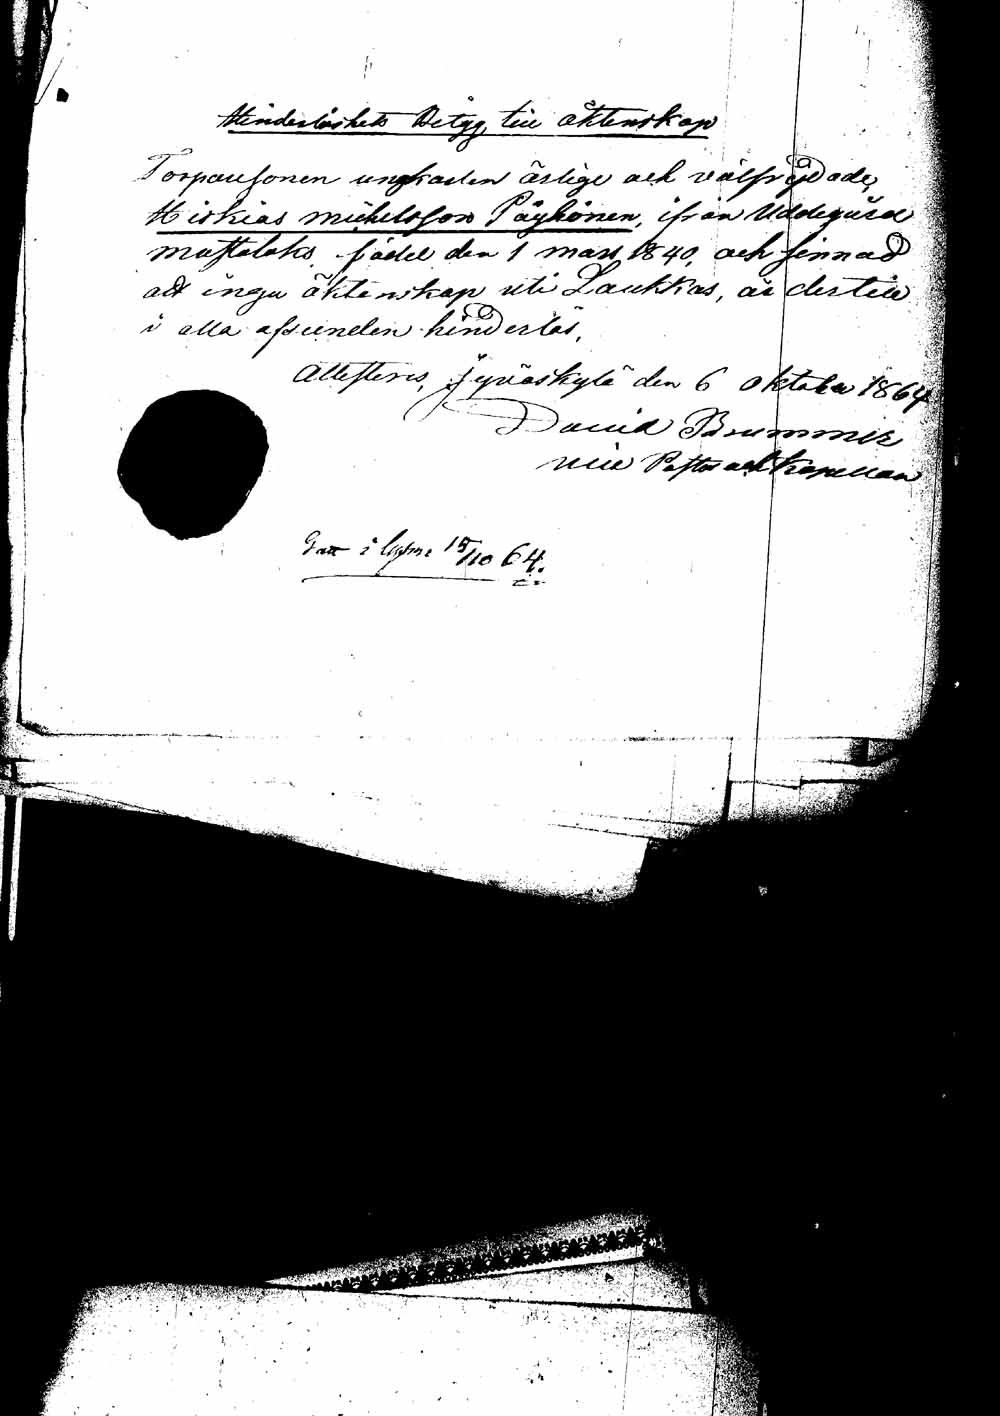 Hinderlöshets Betyg till äktenskap
Torparesonen ungkarlen ärlige och välfrejdade,
Hiskias Michelsson Päyhönen, ifrån Uddegård
Mustalaks född den 1 mars 1840, och sinnad
att ingå äktenskap uti Laukkas, är dertill
i alla afseenden hinderlös.
Attesteras, Jyväskylä den 6 Oktober 1864
David Brummer
vice Pastor och Kapellan
15/10 64.